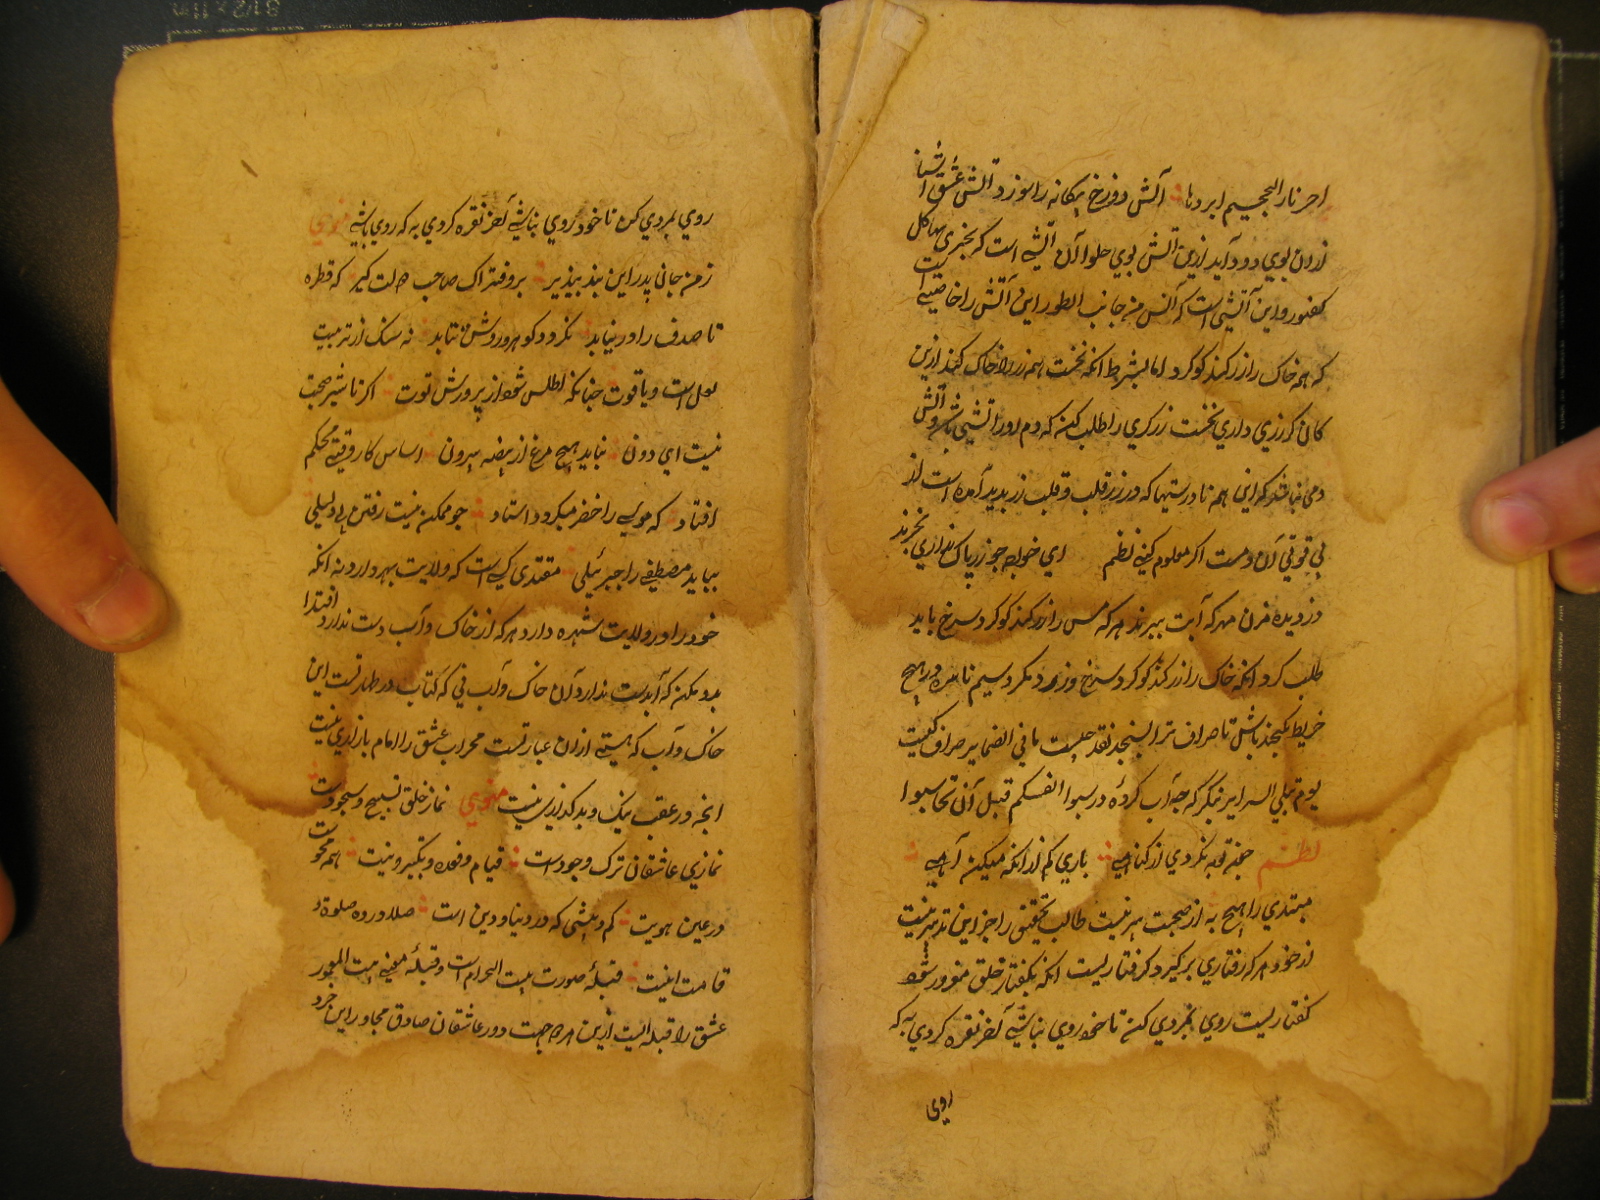 احر نار الجحیم ابردها آتش دوزخ بیکانه را سوزد و آتش عشق آشنا
ازان بوی دود آید ازین آتش بوی حلوا آن آتشی است که
کفور و این آتشی است که آنس من جانب الطور این آتش را خاصیتی است
که هم خاک را زر کند کوکرد اما بشرط انکه نخست هم زر را خاک کند ازین
کان کر زری داری نخست زرکری را طلب کن که دم او را آتشی باشد و آتش
دمی نباشد که این هم نادرستیها که در زر قلب و قلب زر بدید آمده است از
بی قوتی آن دمست اکر معلوم کنی نظم ای خواجه جو زر پاک نداری نخرند
دزدیده مزن مهر که آبت ببرند هر که مس را زر کند کوکرد سرخ باید
طلب کرد انکه خاک را زر کند کوکرد سرخ و زرد مکرد سیم نا سره در هیچ
خریطه مکنجد باش تا صراف ترا بسنجد نقد جیست ما فی الضمایر صراف کیست
یوم تبلی السرایر بنکر که جه آب کرده در سبوا انفسکم قبل ان تحاسبوا
نظم جون توبه نکردی از کناهی باری کم از انکه میکش آهی
مبتدی را هیچ به از صحبت پیر نیست طالب تحقیق را جز این تدبیر نیست
از خود هر که رفتاری بر کیرد کرفتاریست انکه بکفتار خلق مغرور شود
کفتاریست روی بمردی کن تا خود روی نباشی آخر نقره کردی به که
روی
روی بمردی کن تا خود روی نباشی آخر نقره کردی به که روی باشی مثنوی
ز من جانی پدر این پند بپذیر برو فتراک صاحب دولت کیر که قطره
تا صدف را در نیابد نکردد کوهر و روشن نتابد نه سنک از تربیت
لعل است و یاقوت جنانکه اطلس شود از پرورش توت اکر تا شیر صحبت
نیست ای دون نیاید هیچ مرغ از بیضه بیرون اساس کار وقتی محکم
افتاد که موسی را خضر میکرد استاد جو ممکن نیست رفتن بی دلیلی
بباید مصطفی را جبرئیلی مقتدی کسی است که ولایت بهر دارد نه انکه
خود را در ولایت شهره دارد هر که از خاک و آب دست ندارد اقتدا
بدو مکن که آبدست ندارد آن خاک و آب نی که کتاب در طهارتست این
خاک و آب که هستی ازان عبارتست محراب عشق را امام بازاری نیست
انجه در عقب نیک و بد کذاری نیست مثنوی نماز خلق تسبیح و سجودست
نمازی عاشقان ترک وجودست قیام و قعده و تکبیر و نیت همه محوست
در عین هویت کم و بیشی که در دنیا و دین است صلا در ده صلوة و
قامت اینست قبلهٔ صورت بیت الحرام است و قبلهٔ معنی بیت المعمور
عشق را قبله ایست ازین هر دو جهت دور عاشقان صادق مجاور این